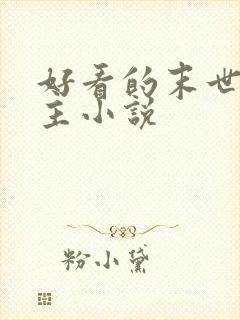 好看的末世
主小说
粉小黛